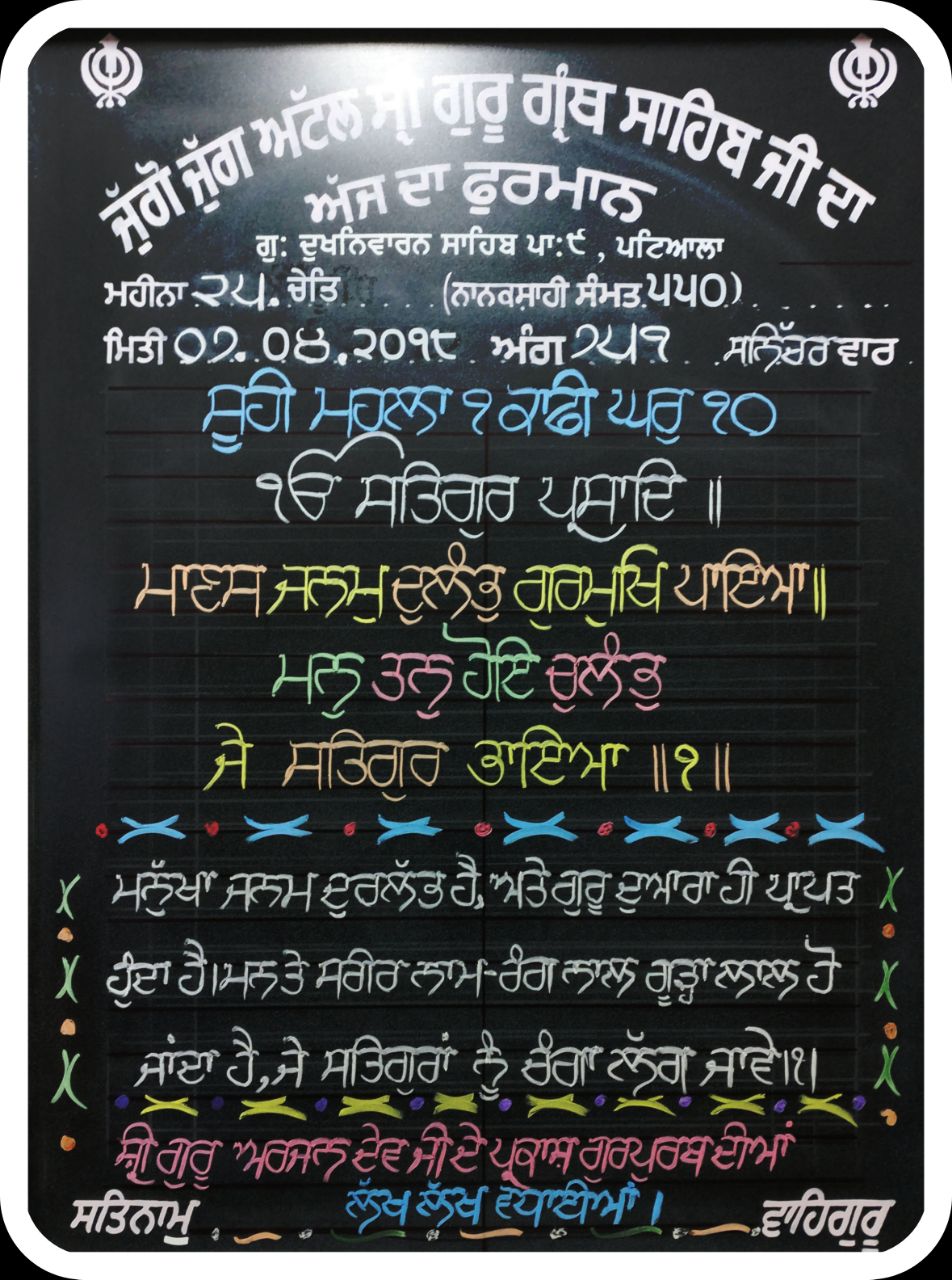 ਜੁੱਗੋ ਜੁੱਗ ਅੱਟਲ ਸ੍ਰੀ ਗੁਰੂ ਗ੍ਰੰਥ ਸਾਹਿਬ ਜੀ ਦਾ
ਅੱਜ ਦਾ ਫੁਰਮਾਨ
ਗੁ: ਦੁਖਨਿਵਾਰਨ ਸਾਹਿਬ ਪਾ:੯, ਪਟਿਆਲਾ
ਮਹੀਨਾ ੨੫. ਚੇਤਿ (ਨਾਨਕਸ਼ਾਹੀ ਸੰਮਤ.੫੫੦)
ਮਿਤੀ ੦੭.੦੪.੨੦੧੮ ਅੰਗ ੭੫੧ ਸਨਿੱਚਰ ਵਾਰ
ਸੂਹੀ ਮਹਲਾ ੧ ਕਾਫੀ ਘਰੁ ੧੦
ੴ ਸਤਿਗੁਰ ਪ੍ਰਸਾਦਿ ॥
ਮਾਣਸ ਜਨਮੁ ਦੁਲੰਭੁ ਗੁਰਮੁਖਿ ਪਾਇਆ॥
ਮਨੁ ਤਨੁ ਹੋਇ ਚੁਲੰਭੁ
ਜੇ ਸਤਿਗੁਰ ਭਾਇਆ ॥੧॥
ਮਨੁੱਖਾ ਜਨਮ ਦੁਰਲੱਭ ਹੈ, ਅਤੇ ਗੁਰੂ ਦੁਆਰਾ ਹੀ ਪ੍ਰਾਪਤ
ਹੁੰਦਾ ਹੈ।ਮਨ ਤੇ ਸਰੀਰ ਨਾਮ-ਰੰਗ ਨਾਲ ਗੂੜ੍ਹਾ ਲਾਲ ਹੋ
ਜਾਂਦਾ ਹੈ, ਜੇ ਸਤਿਗੁਰਾਂ ਨੂੰ ਚੰਗਾ ਲੱਗ ਜਾਵੇ।੧।
ਸ਼੍ਰੀ ਗੁਰੂ ਅਰਜਨ ਦੇਵ ਜੀ ਦੇ ਪ੍ਰਕਾਸ਼ ਗੁਰਪੁਰਬ ਦੀਆਂ
ਲੱਖ ਲੱਖ ਵਧਾਈਆਂ।
ਸਤਿਨਾਮੁ ਵਾਹਿਗੁਰੂ